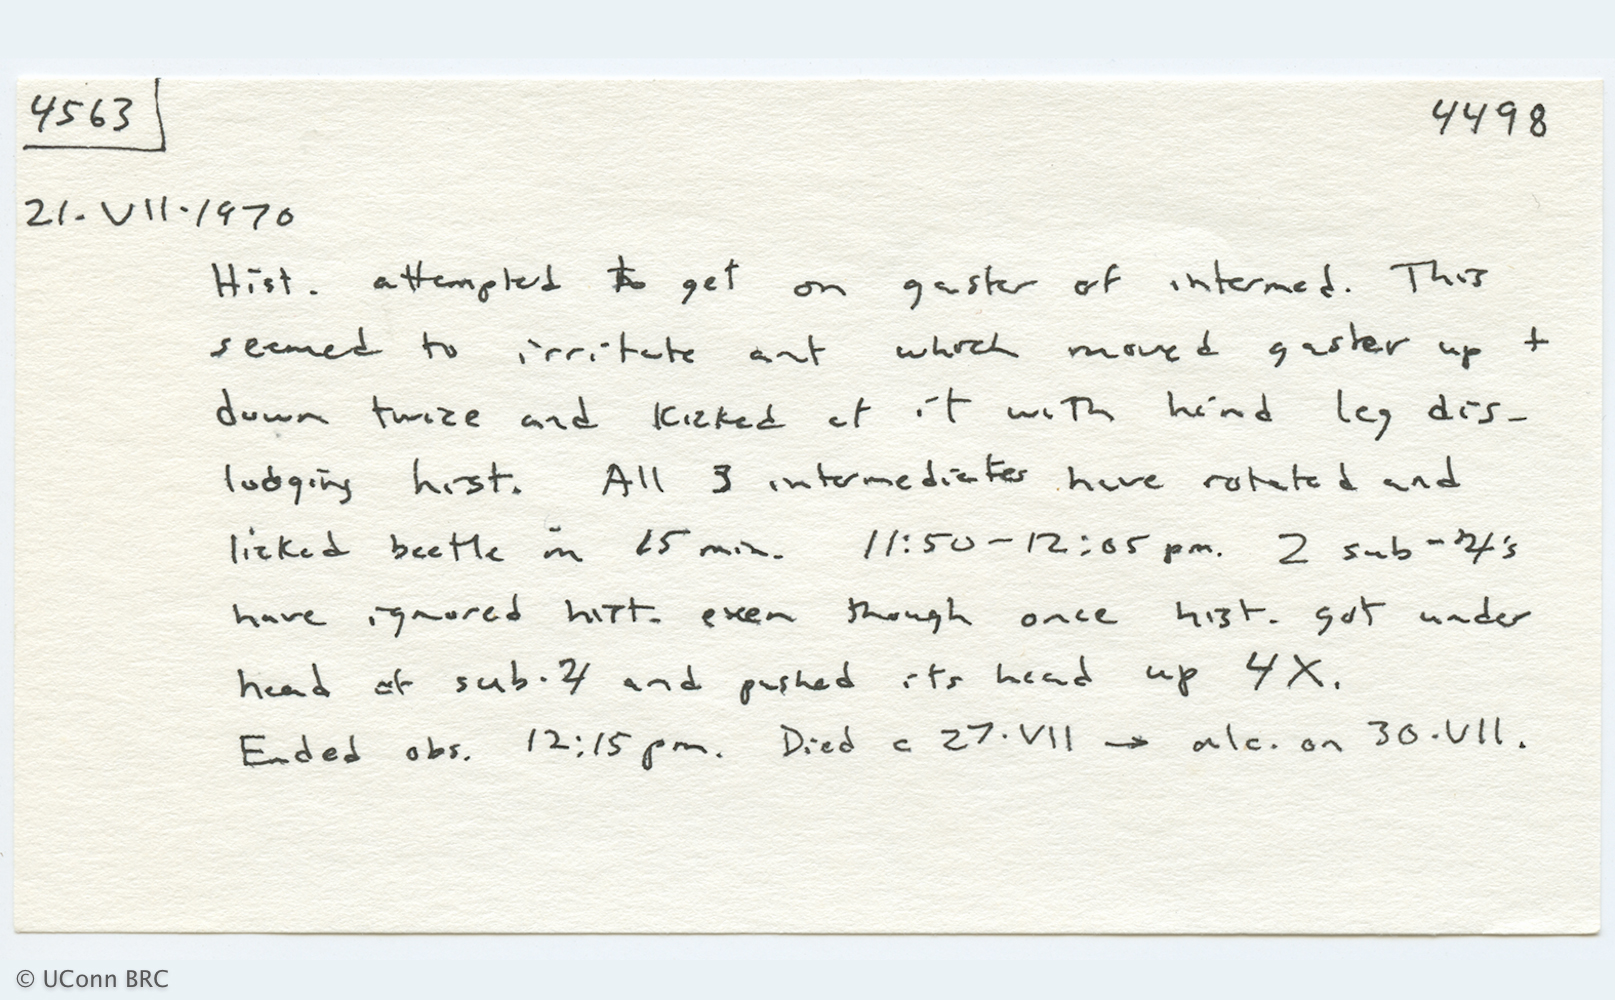 4563
4498
21.VII.1970
Hist. attempted to get on gaster of intermed. This
seemed to irritate ant which moved gaster up +
down twice and kicked at it with hind leg dis-
lodging hist. All 3 intermediates have rotated and
licked beetle in 15 min. 11:50-12:05 pm. 2 sub-♃'s
have ignored hist. even though once hist. got under
head of sub.♃ and pushed its head up 4X.
Ended obs. 12:15 pm. Died c 27.VII → alc. on 30.VII.
© UConn BRC